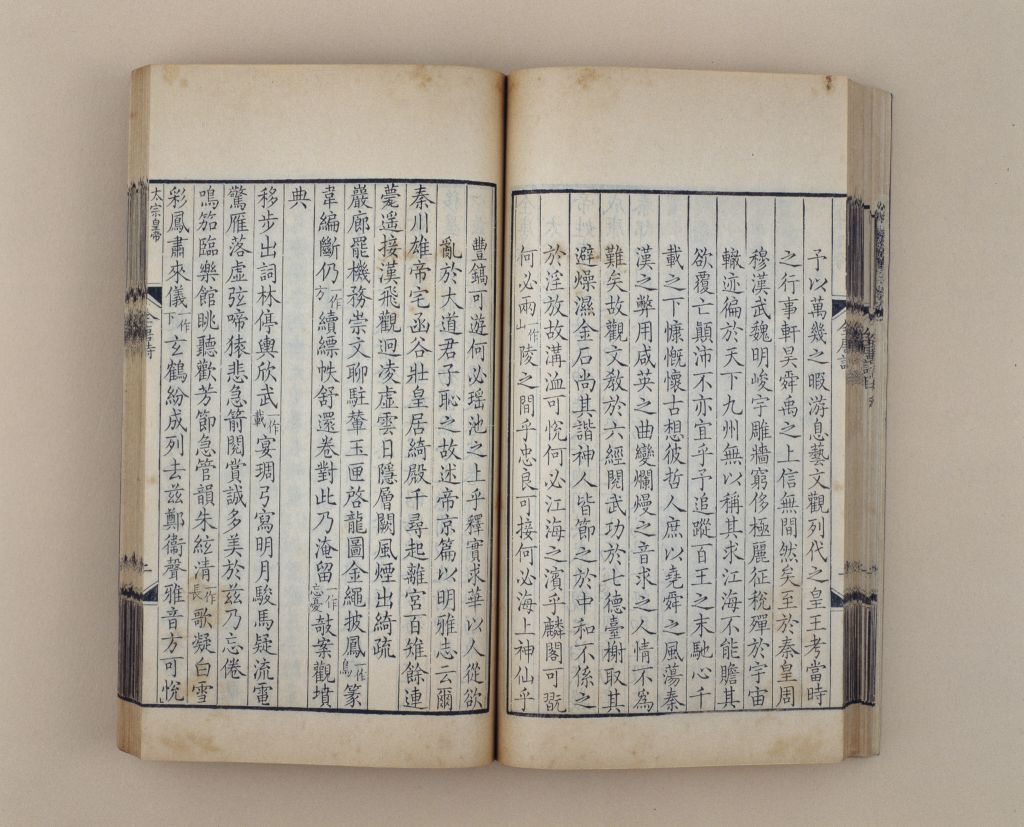 予以萬幾之暇游息藝文觀列代之皇王考當時
之行事軒昊舜禹之上信無間然矣至於秦皇周
穆漢武魏明峻宇雕牆窮侈極麗征稅殫於宇宙
轍迹徧於天下九州無以稱其求江海不能贍其
欲覆亡顛沛不亦宜乎予追蹤百王之末馳心千
載之下慷慨懷古想彼哲人庶以堯舜之風蕩秦
漢之弊用咸英之曲變爛熳之音求之人情不爲
難矣故觀文敎於六經閱武功於七德臺榭取其
避燥濕金石尚其諧神人皆節之於中和不係之
於淫放故溝洫可悅何必江海之濱乎麟閣可翫
何必兩一作山陵之間乎忠良可接何必海上神仙乎
豐鎬可遊何必瑶池之上乎釋實求華以人從欲
亂於大道君子恥之故述帝京篇以明雅志云爾
秦川雄帝宅函谷壯皇居綺殿千尋起離宮百雉餘連
甍遥接漢飛觀迥凌虛雲日隱層闕風煙出綺疏
巖廊罷機務崇文聊駐輦玉匣啓龍圖金繩披鳳一作鳥篆
韋編斷仍一作方續縹帙舒還卷對此乃淹留一作忘憂攲案觀墳
典
移步出詞林停輿欣武一作載宴琱弓寫明月駿馬疑流電
驚雁落虛弦啼猿悲急箭閱賞誠多美於兹乃忘倦
鳴笳臨樂館眺聽歡芳節急管韻朱絃清一作長歌凝白雪
彩鳳肅來儀一作下玄鶴紛成列去兹鄭衞聲雅音方可悅
太宗皇帝
全唐詩